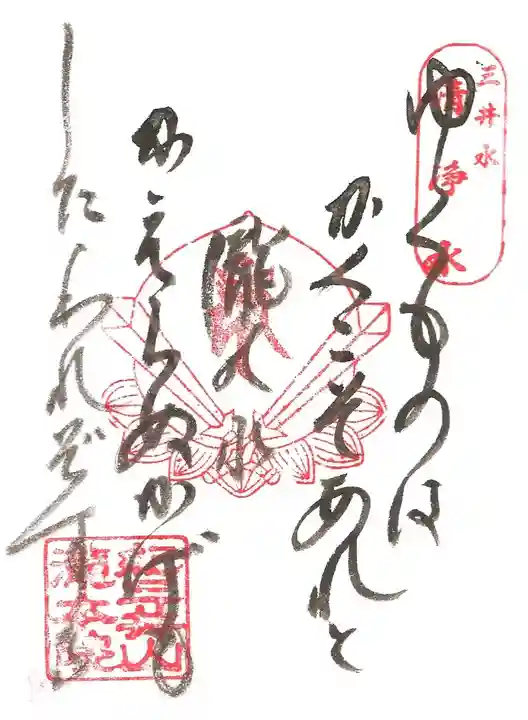 三井水
清浄水
ゆくものは
かくこそあれと
瀧の水
かへらぬかげも
したわれぞする